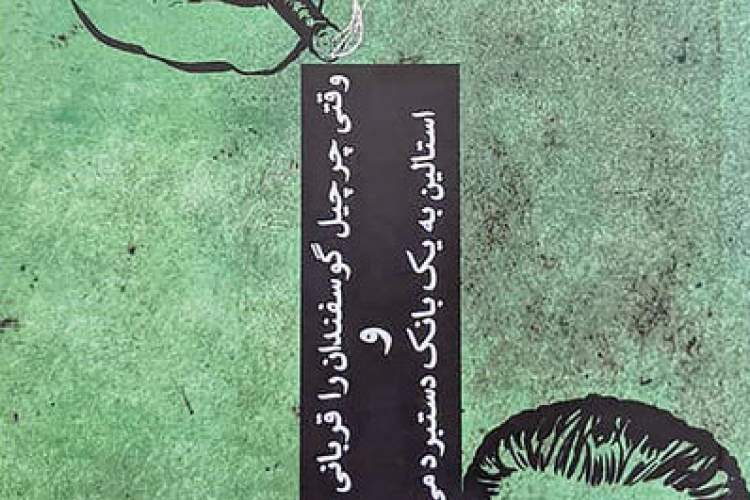 وقتی چرچیل گوسفندان را قربانی
و
استالین به یک بانک دستبرد می